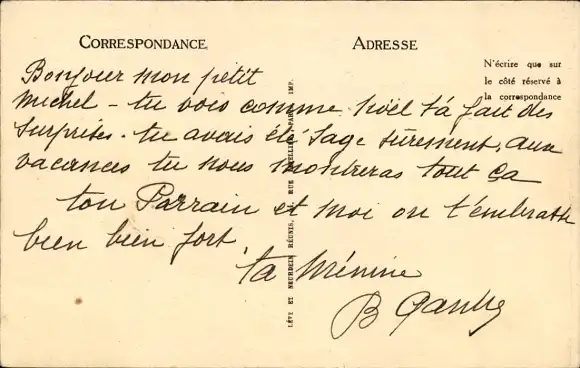 CORRESPONDANCE
ADRESSE
N'écrire que sur
le côté réservé à
la correspondance
Bonjour mon petit
Michel - tu vois comme Noël t'a fait des
surprises. tu avais été sage sûrement, aux
vacances tu nous montreras tout ça
ton Parrain et moi on t'embrasse
bien bien fort.
ta Mémine
B
LÉVY ET NEURDEIN RÉUNIS, RUE LETELLIER, PARIS IMP.